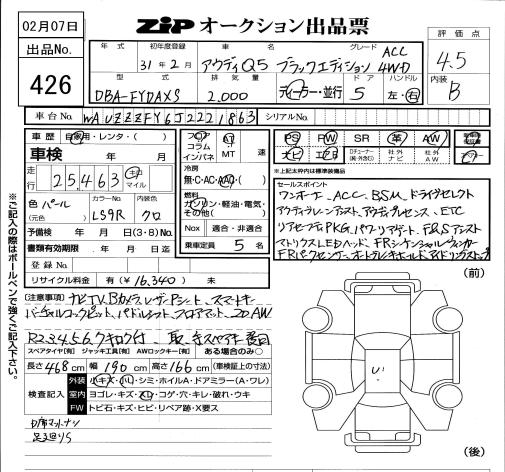 02月07日
出品No.
426
ZIP オークション出品票
評価点
4.5
内装
B
年式 初年度登録 車名 グレード
31年2月 アウディQ5 ブラックエディション ACC 4WD
型式 排気量 ドア ハンドル
DBA-FYDAXS 2,000 ディーラー・並行 5 左・右
車台No. WAUZZZFY6J2221863 シリアルNo.
車歴 自家用・レンタ・( )
車検 年 月
走行 25,463 km マイル
色 パール
(元色)
カラーNo. LS9R
内装色 クロ
予備検 年 月 日 (3・8) No.
書類有効期限 年 月 日
登録No.
リサイクル料金 有 (¥16,340)
シフト
フロア
コラム
インパネ
AT
MT 速
冷房
無・C・AC・AAC・( )
燃料
ガソリン・軽油・電気・
その他( )
Nox 適合・非適合
乗車定員 5 名
PS PW SR 革 AW
ナビ エアB Dチューナー(純・社外) 社外ナビ 社外AW
※上記太枠内は標準装備品
セールスポイント
ワンオーナー、ACC、BSM、ドライブセレクト
アウディレーンアシスト、アウディプレセンス、ETC
リアセーフティPKG、パワーリアゲート、F&Rアシスト
マトリクスLEDヘッド、FRシーケンシャルウィンカー
(注意事項) ナビTV、Bカメラ、レザーPシート、スマートキー
バーチャルコックピット、パドルシフト、フロアマット、20AW
R2.3.4.5.6.
スペアタイヤ[有] ジャッキ工具[有] AWロックキー[有] ある場合のみ○
長さ 468 cm 幅 190 cm 高さ 166 cm (車検証上の寸法)
検査記入
外装 小キズ・凹・シミ・ホイルA・ドアミラー(A・ワレ)
室内 ヨゴレ・キズ・スレ・コゲ・穴・キレ・破れ・ウキ
FW トビ石・キズ・ヒビ・リペア跡・X要ス
(前)
(後)
※ご記入の際はボールペンで強くご記入下さい。